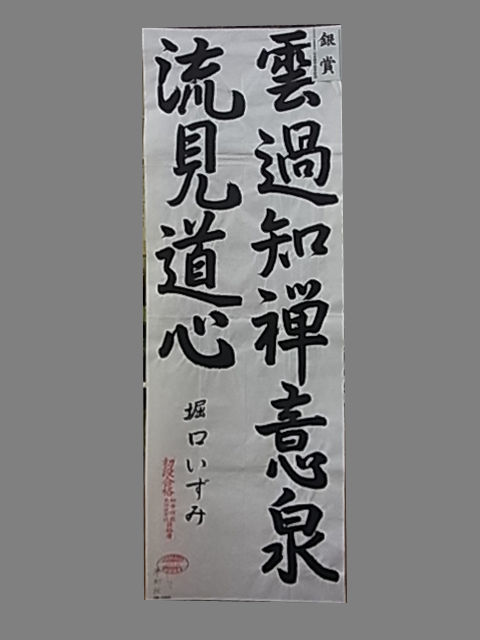 銀賞
雲過知禅意泉
流見道心
堀口いずみ
初段合格